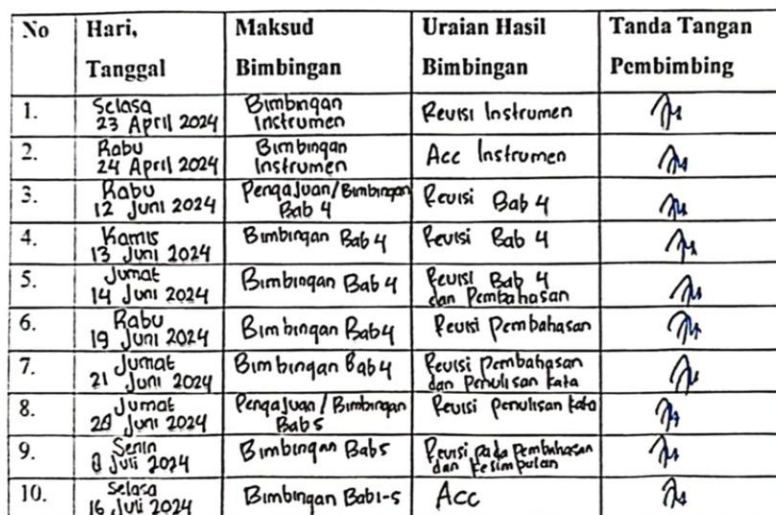 No Hari, Tanggal Maksud Bimbingan Uraian Hasil Bimbingan Tanda Tangan Pembimbing
1. Selasa 23 April 2024 Bimbingan Instrumen Revisi Instrumen
2. Rabu 24 April 2024 Bimbingan Instrumen Acc Instrumen
3. Rabu 12 Juni 2024 Pengajuan/Bimbingan Bab 4 Revisi Bab 4
4. Kamis 13 Juni 2024 Bimbingan Bab 4 Revisi Bab 4
5. Jumat 14 Juni 2024 Bimbingan Bab 4 Revisi Bab 4 dan Pembahasan
6. Rabu 19 Juni 2024 Bimbingan Bab 4 Revisi Pembahasan
7. Jumat 21 Juni 2024 Bimbingan Bab 4 Revisi Pembahasan dan Penulisan kata
8. Jumat 28 Juni 2024 Pengajuan / Bimbingan Bab 5 Revisi penulisan kata
9. Senin 8 Juli 2024 Bimbingan Bab 5 Revisi pada Pembahasan dan Kesimpulan
10. Selasa 16 Juli 2024 Bimbingan Bab 1-5 Acc